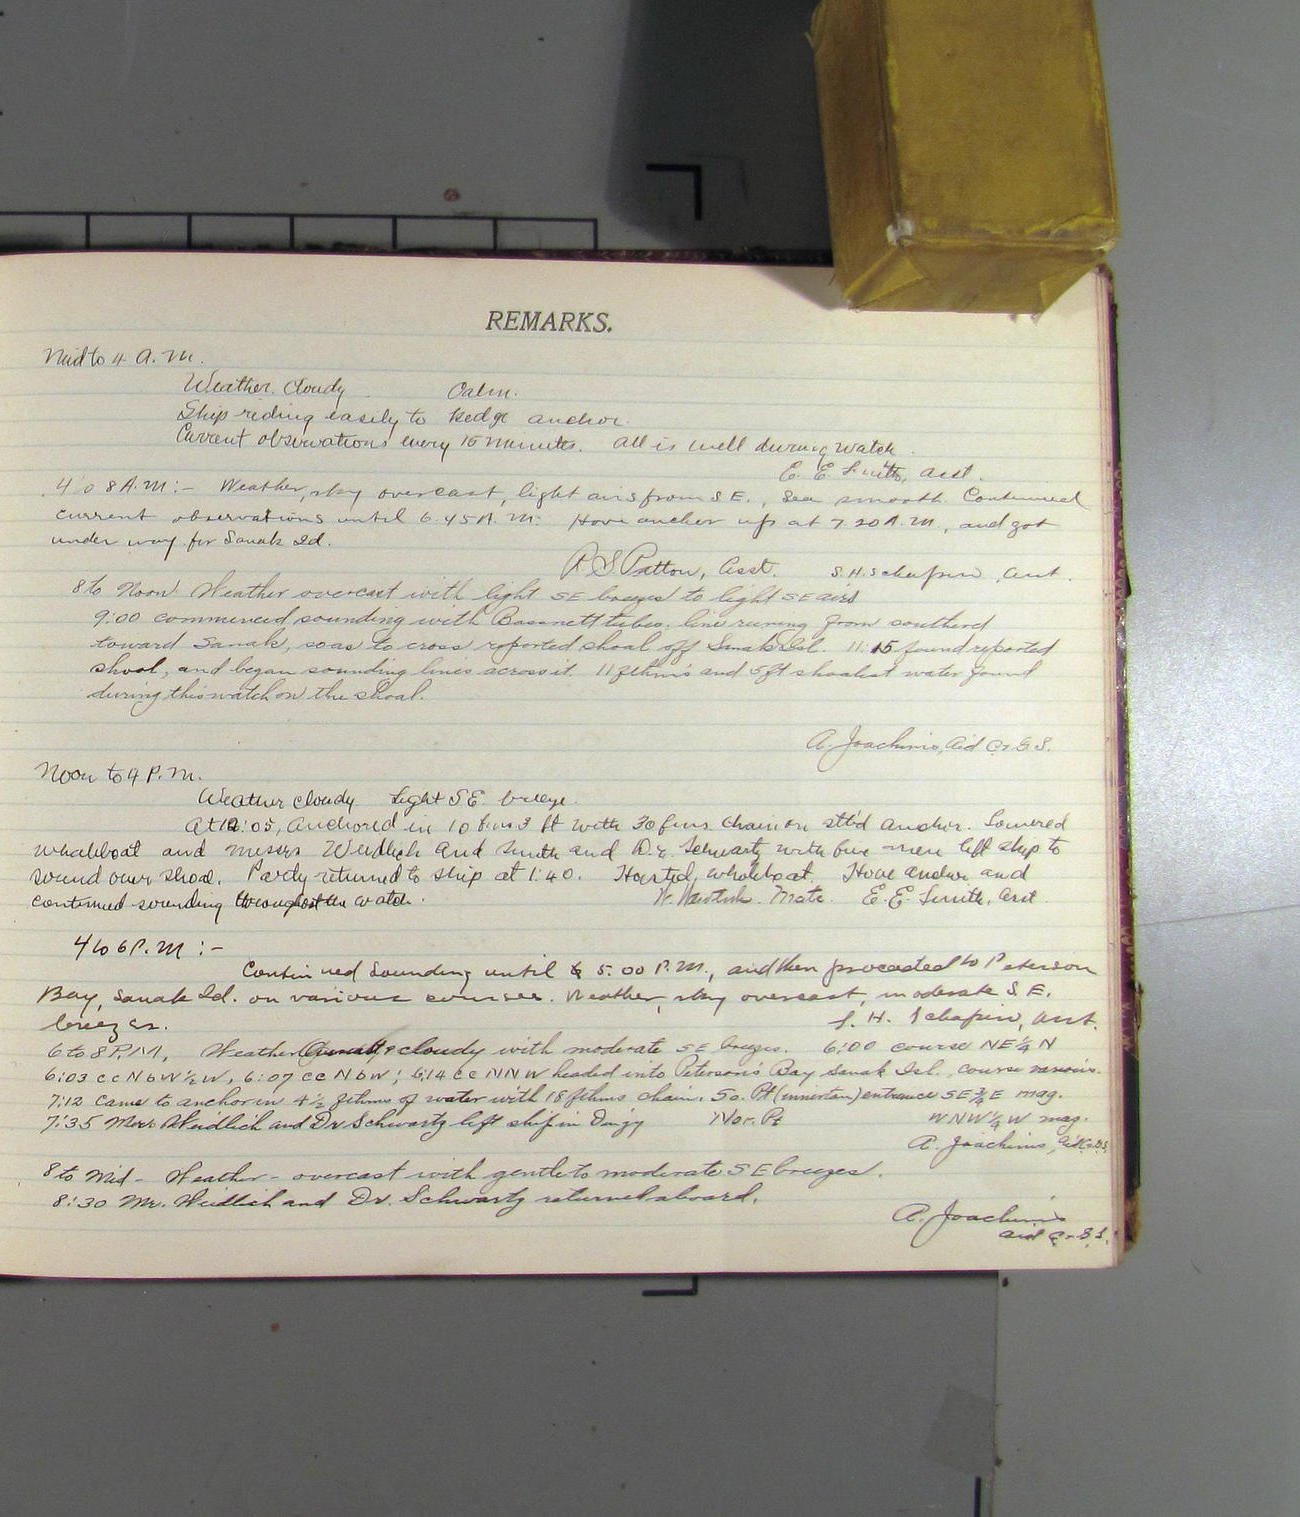 REMARKS.
Mid to 4 A.M.
Weather. Cloudy Calm.
Ship riding easily to Kedge anchor.
Current observations every 15 minutes. All is well during watch.
E. E. Smith, asst.
4 to 8 A.M:- Weather, sky overcast, light airs from S E., Sea smooth. Continued
current observations until 6.45 A.M. Hove anchor up at 7.20 A.M., and got
under way for Sanak Id.
R S Patton, Asst. S. H. Schafirin, asst.
8 to Noon Weather overcast with light SE breezes to light SE airs
9:00 commenced sounding with Bassnett tubes, line running from southerd
toward Sanak, so as to cross reported shoal off Sanak Isl. 11:15 found reported
shoal, and began sounding lines across it. 11 fthms and 5 ft shoalest water found
during this watch on the shoal.
A. Joachims, Aid C & G. S.
Noon to 4 P.M.
Weather cloudy Light S E breeze.
At 12:05, Anchored in 10 fms 3 ft with 30 fms chain on stb'd anchor. Lowered
whaleboat and Messrs Weidlich and Smith and Dr. Schwartz with five men left ship to
sound over shoal. Party returned to ship at 1:40. Hoisted whaleboat. Hove anchor and
continued sounding throughout the watch. Mate. E. E. Smith, Asst
4 to 6 P.M :-
Continued Sounding until 5:00 P.M., and then proceeded to Peterson
Bay, Sanak Id. on various courses. Weather, sky overcast, moderate S E.
breezes. S. H. Schafirin, asst.
6 to 8 P.M, Weather cloudy with moderate SE breezes. 6:00 course NE¼N
6:03 cc N b W ½ W, 6:07 cc N b W; 6:14 cc NNW headed into Peterson's Bay Sanak Isl. course various.
7:12 Came to anchor in 4½ fthms of water with 18 fthms chain. So. Pt entrance SE¾E mag.
7:35 Messrs Weidlich and Dr Schwartz left ship in Dingy Nor. Pt WNW¼W mag.
A. Joachims, Aid C&G.S
8 to Mid - Weather - overcast with gentle to moderate S E breezes.
8:30 Mr. Weidlich and Dr. Schwartz returned aboard.
A. Joachims
aid C & G. S.